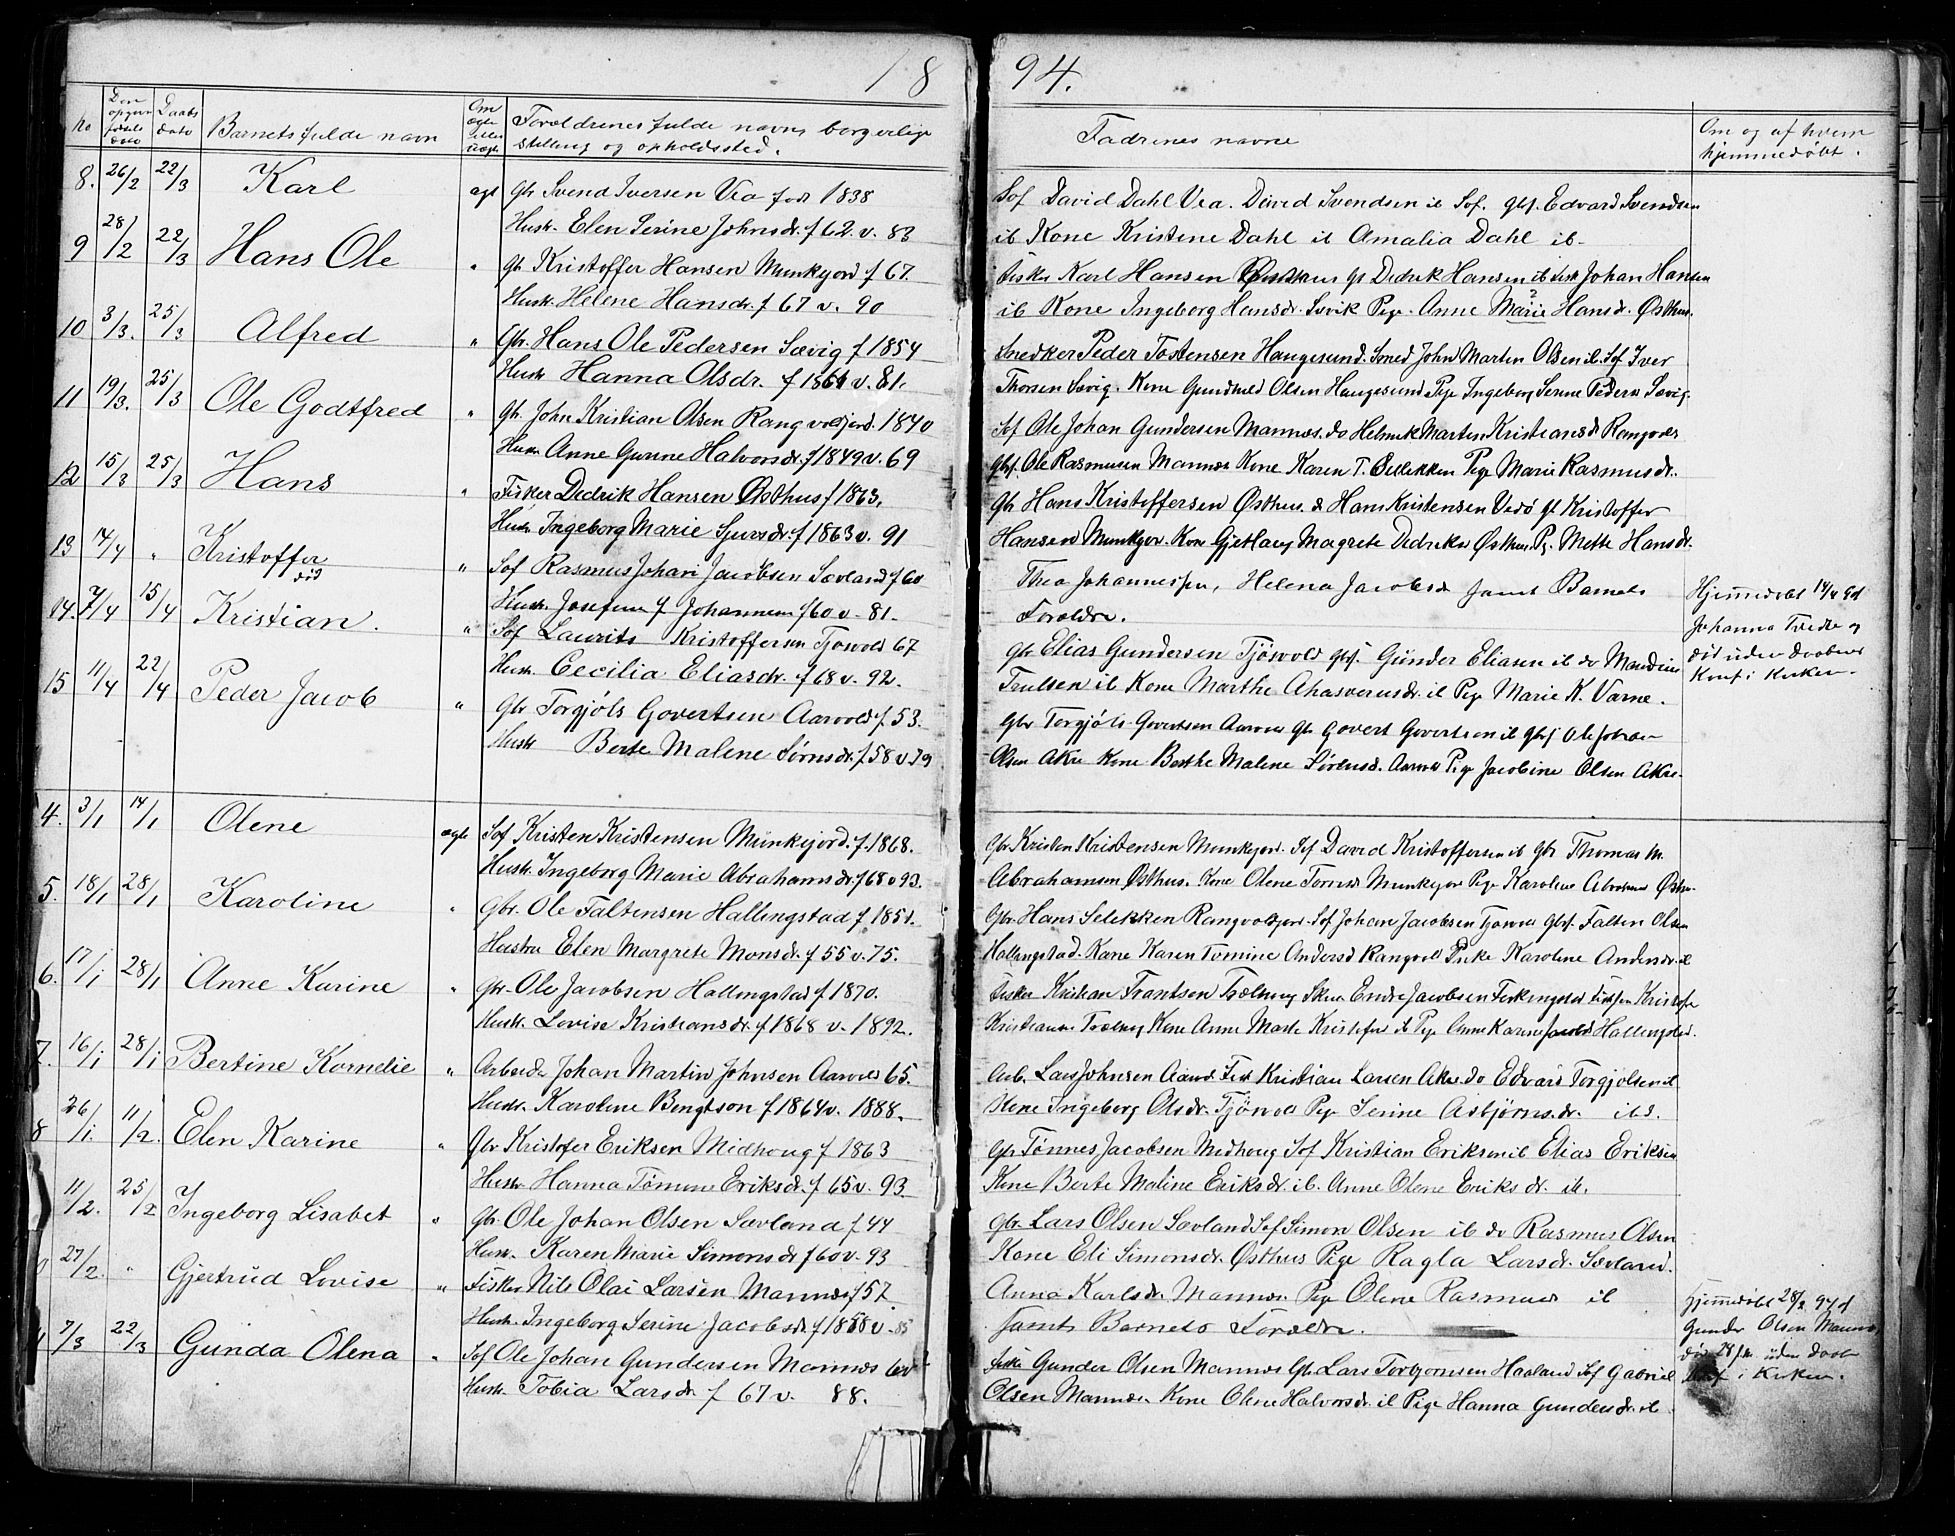 18 94.
No
Den opgivne fødsels dato
Daabs dato
Barnets fulde navn
Om ægte eller uægte
Forældrenes fulde navne borgerlige
stilling og opholdssted.
Fadrenes navne
Om og af hvem
hjemmedøbt.
8. 26/2 22/3 Karl ægt Gbr Svend Iversen Vea født 1838
Hustr. Elen Serine Johnsdr. f 62 v. 83
Sof David Dahl Vea. David Svendsen ib Sof. gbf. Edvard Svendsen
ib Kone Kristene Dahl ib Amalia Dahl ib.
9 28/2 22/3 Hans Ole " Gb Kristoffer Hansen Munkejord f 67.
Hustr. Helene Hansdr. f 67 v. 90
Fisker Karl Hansen Østhus gb Dedrik Hansen ib Fisk Johan Hansen
ib Kone Ingeborg Hansdr. Sevik Pige. Anne Marie Hansdr. Østhus.
10 3/3. 25/3 Alfred " Gbr. Hans Ole Pedersen Sævig f 1854
Hustr Hanna Olsdr. f 1861 v. 81.
Snedker Peder Tostensen Haugesund. Smed John Martin Olsen ib. Sof Iver
Thorsen Sævig. Kone Gundhild Olsen Haugesund Pige Ingeborg Serine Peders Sævig.
11 19/3. 25/3 Ole Godtfred " Gb. John Kristian Olsen Rangvoldsjord. 1840
Hustr Anne Gurine Halvorsdr. f 1849 v. 69
Sof Ole Johan Gundersen Mannes. do Helmik Martin Kristians dr Rangvolds
gbf. Ole Rasmusen Mannes Kone Karen T. Selekken Pige Marie Rasmusdr.
12 15/3 25/3 Hans " Fisker Dedrik Hansen Østhus f 1863.
Hustr Ingeborg Marie Sjursdr. f 1863 v. 91
Gb Hans Kristoffersen Østhus. do Hans Kristensen Vedø gf Kristoffer
Hansen Munkejor. Kone Gjertlaug Magrete Dedriks Østhus. P. Mette Hansdr.
13 14/4 " Kristoffer
død " Sof Rasmus Johan Jacobsen Sævland f 60
Hustr. Josefine f Johannesen f 60 v. 81.
Thea Johannessen, Helena Jacobsdr samt Barnets
Forældre.
Hjemmedøbt 14/4 94
Johanna Tvedte og
død uden daabens
Konf i Kirken.
14. 7/4 15/4 Kristian. " Sof Laurits Kristoffersen Tjøsvold 67
Hustr. Cecilia Eliasdr. f 68 v. 92.
gbr Elias Gundersen Tjøsvold gbf. Gunder Eliasen ib do Mandius
Trulsen ib Kone Marthe Ahasverusdr. ib Pige Marie K. Varne.
15 11/4 22/4 Peder Jacob " Gbr Torgjøls Govertsen Aarvold f. 53.
Hustr Berte Malene Sørnsdr. f 58 v 79
gbr Torgjøls Govertsen Aarvold Gb Govert Govertsen ib gbf Ole Johan
Olsen Akre Kone Berthe Malene Sørensd. Aarvold Pige Jacobine Olsen Akre.
4. 3/1 14/1 Olene ægte Sof Kristen Kristensen Munkejord. f. 1868.
Hustr. Ingeborg Marie Abrahamsdr. f 68 v 93.
Gbr Kristen Kristensen Munkejor. Sof David Kristoffersen ib Gbr Thomas M.
Abrahamsen Østhus. Kone Olene Tormsd Munkejor Pige Karoline Abrahams Østhus.
5. 18/1 28/1 Karoline " Gbr. Ole Faltensen Hallingstad f 1851.
Hustru Elen Margrete Monsdr. f 55 v. 75.
Gbr. Hans Selekken Rangvoldsjord. Sof Johan Jacobsen Tjøsvold gbf. Falten Olsen
Hallingstad. Kone Karen Tomine Andersd Rangvold Pike Karoline Andersdr. ib
6. 17/1 28/1 Anne Karine " Gb. Ole Jacobsen Hallingstad f 1870.
Hustr. Lovise Kristiansdr. f 1868 v. 1892.
Fisker Kristian Frantsen Trælhaug Endre Jacobsen Ferkingstad Kristofer
Kristiansen Trælhaug Kone Anne Marte Kristofer ib Pige Anne Karine Jacobsd Hallingstad.
7. 16/1 28/1 Bertine Kornelie " Arbeider Johan Martin Johnsen Aarvold 65.
Hustr. Karoline Bengtson f 1864 v. 1888.
Arb. Lars Johnsen Fisk Kristian Larsen Akre do Edvard Torgjølsen ib
Kone Ingeborg Olsdr. Tjøsvold Pige Serine Asbjørnsdr. ibd.
8 26/1. 11/2. Elen Karine " Gbr Kristofer Eriksen Midhoug f 1863
Hustr Hanna Tømine Eriksdr. f 65 v. 93
Gb Tønnes Jacobsen Medhoug Sof Kristian Eriksen ib Elias Eriksen
Kone Berte Maline Eriksdr. ib. Anne Olene Eriksdr. ib.
11/2. 25/2 Ingeborg Lisabet " Gbr. Ole Johan Olsen Sævland f 44
Hustr. Karen Marie Simonsdr f 60 v. 93
Gbr. Lars Olsen Sævland Sof Simon Olsen ib do Rasmus Olsen
Kone Eli Simonsdr. Østhus Pige Ragla Larsdr. Sævland.
27/2. " Gjertrud Lovise " Fisker Nils Olai Larsen Mannes f 57.
Hustr. Ingeborg Serine Jacobsdr. f 1858 v. 85
Anna Karlsdr Mannes. Pige Olene Rasmusd ib
Samt Barnets Forældre.
Hjemmedøbt 28/2 94 af
Gunder Olsen Mannes
død 28 uden daab
Konf i Kirken.
7/3 22/3 Gunda Olena " Sof Ole Johan Gundersen Mannes 60
Hustr. Tobia Larsdr f 67 v. 88.
Fisker Gunder Olsen Mannes Gb. Lars Torbjørnsen Haaland Sof Gabriel
Olsen Mannes. Kone Olene Halvorsdr. ib Pige Hanna Gundersdr. ib